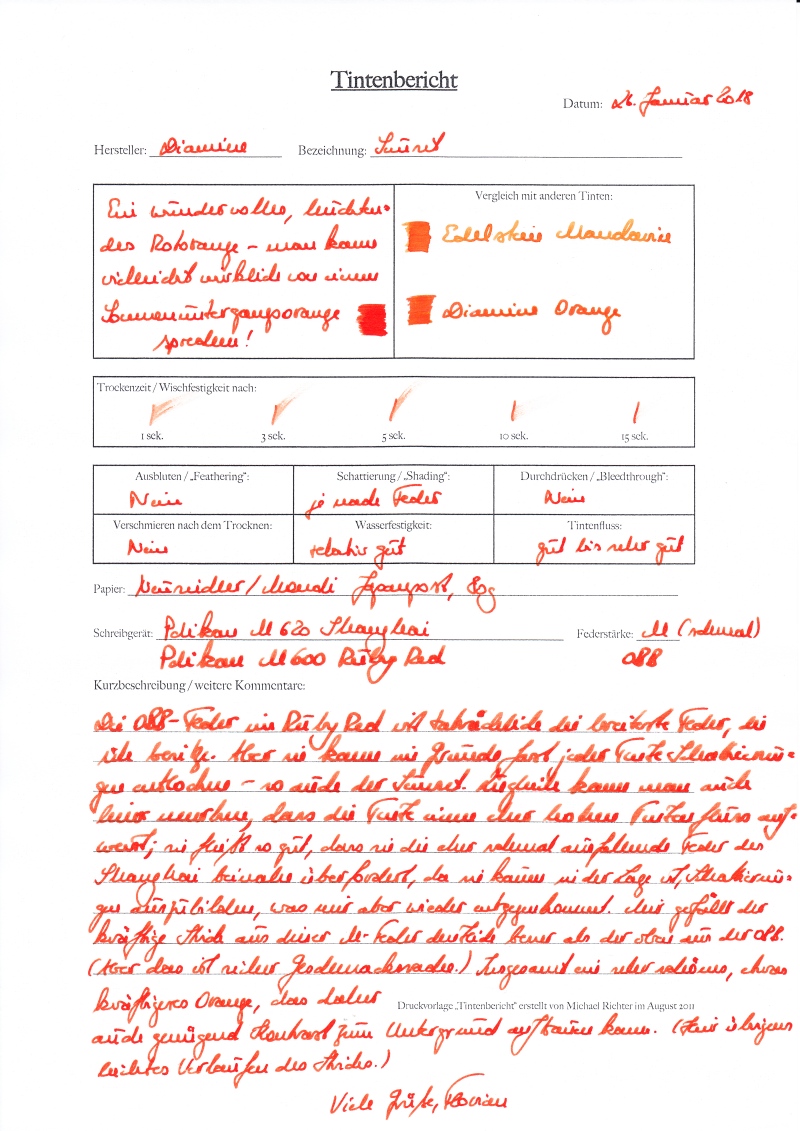 Tintenbericht
Datum: 26. Januar 2018
Hersteller: Diamine Bezeichnung: Sunset
Ein wundervolles, leuchten-
des Rotorange – man kann
vielleicht wirklich von einem
Sonnenuntergangsorange
sprechen!
Vergleich mit anderen Tinten:
Edelstein Mandarin
Diamine Orange
Trockenzeit / Wischfestigkeit nach:
1 sek. 3 sek. 5 sek. 10 sek. 15 sek.
Ausbluten / „Feathering": Schattierung / „Shading": Durchdrücken / „Bleedthrough":
Nein je nach Feder Nein
Verschmieren nach dem Trocknen: Wasserfestigkeit: Tintenfluss:
Nein relativ gut gut bis sehr gut
Papier: Neusiedler / Mondi 80g
Schreibgerät: Pelikan M 620 Shanghai Federstärke: M (schmal)
Pelikan M 600 Ruby Red OBB
Kurzbeschreibung / weitere Kommentare:
Die OBB-Feder im Ruby Red ist tatsächlich die breiteste Feder, die
ich besitze. Aber sie kann im Grunde fast jeder Tinte Schattierun-
gen entlocken – so auch der Sunset. kann man auch
hier merken, dass die Tinte einen eher hohen Tintenfluss auf-
weist; sie fließt so gut, dass sie die eher schmal ausfallende Feder des
Shanghai beinahe überfordert, da sie kaum in der Lage ist, Schattierun-
gen auszubilden, was mir aber wieder entgegenkommt. Mir gefällt der
kräftige Strich aus dieser M-Feder deutlich besser als der oben aus der OBB.
(Aber das ist reiner Geschmackssache.) Insgesamt ein sehr schönes, etwas
kräftigeres Orange, das daher
Druckvorlage „Tintenbericht" erstellt von Michael Richter im August 2011
auch genügend Kontrast zum Untergrund aufbauen kann. (Hier übrigens
leichtes Verlaufen des Striches.)
Viele Grüße, Florian